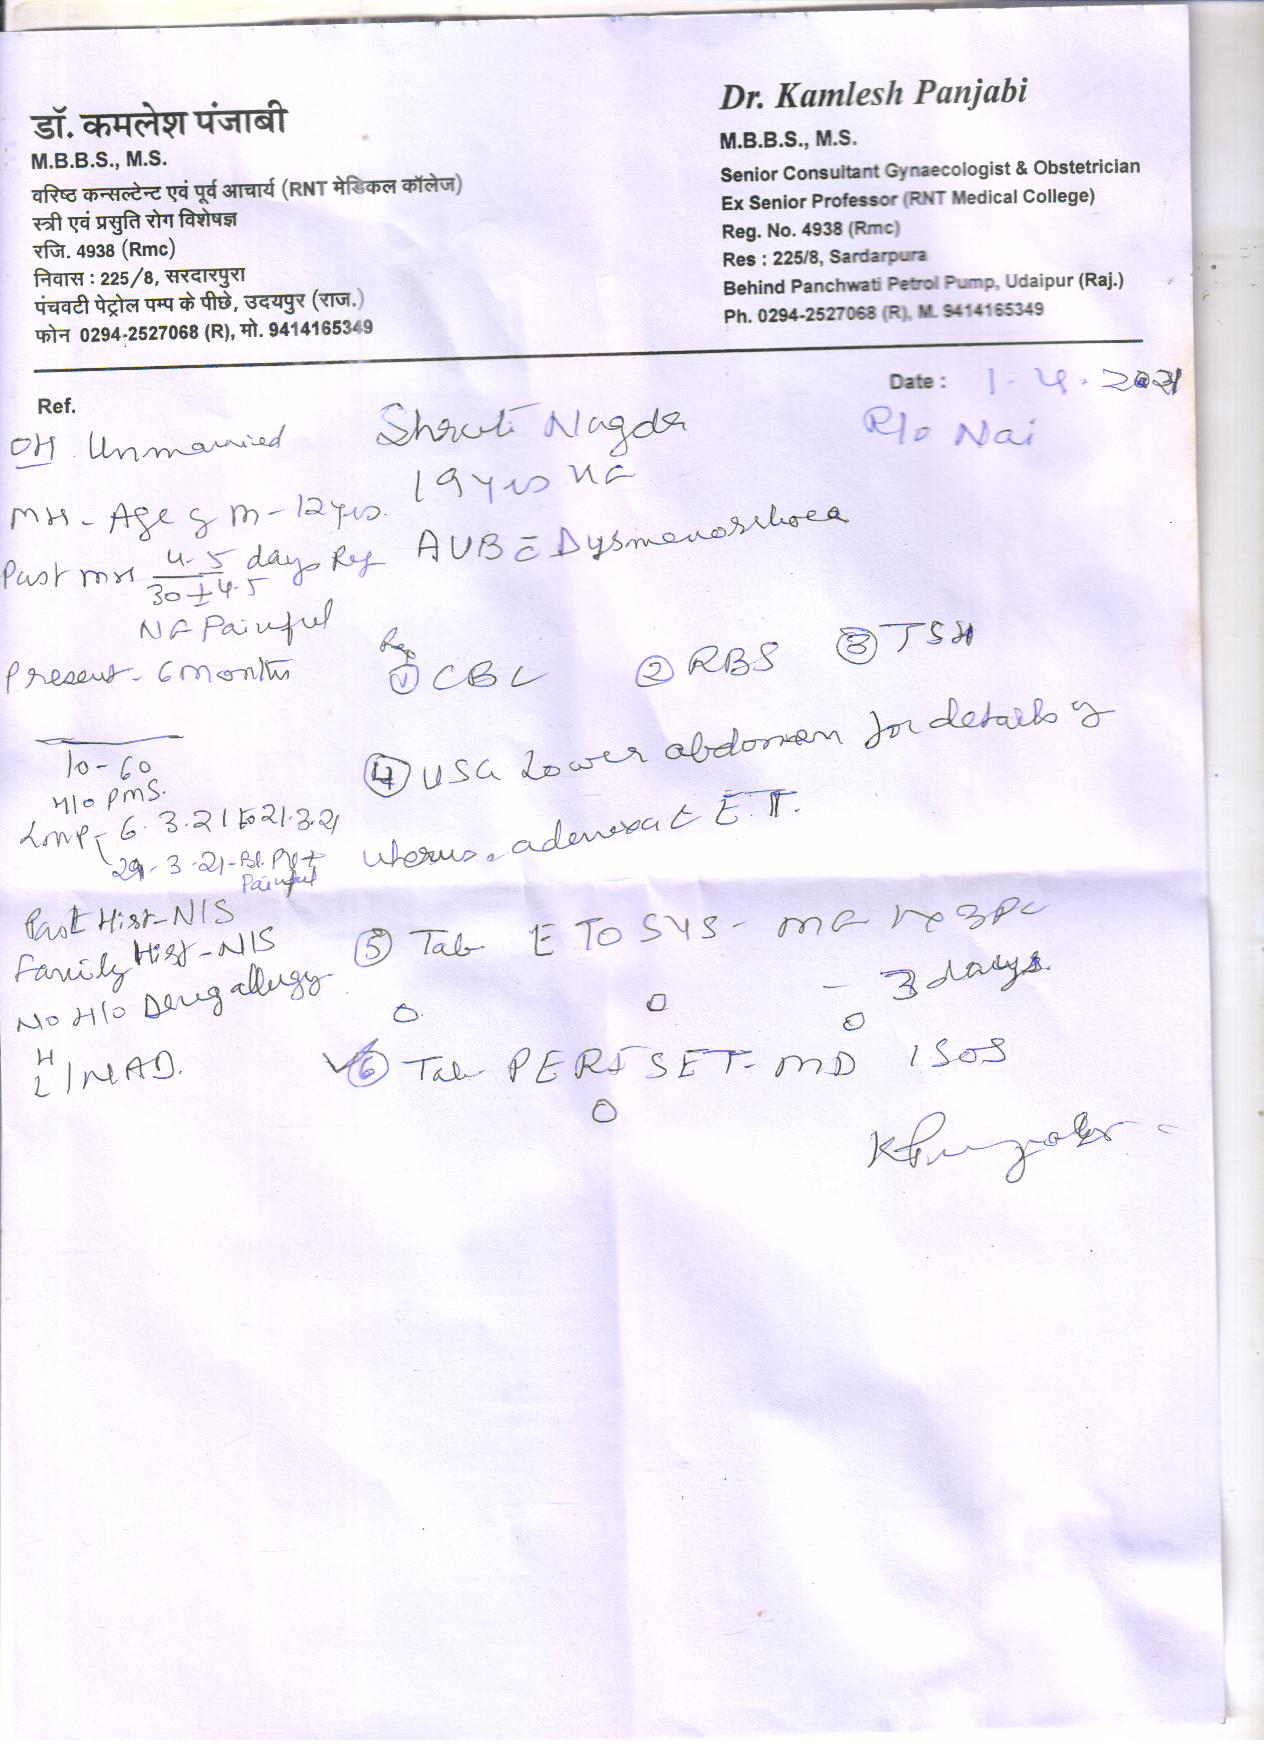 डॉ. कमलेश पंजाबी
M.B.B.S., M.S.
वरिष्ठ कन्सल्टेन्ट एवं पूर्व आचार्य (RNT मेडिकल कॉलेज)
स्त्री एवं प्रसुति रोग विशेषज्ञ
रजि. 4938 (Rmc)
निवास : 225/8, सरदारपुरा
पंचवटी पेट्रोल पम्प के पीछे, उदयपुर (राज.)
फोन 0294-2527068 (R), मो. 9414165349
Dr. Kamlesh Panjabi
M.B.B.S., M.S.
Senior Consultant Gynaecologist & Obstetrician
Ex Senior Professor (RNT Medical College)
Reg. No. 4938 (Rmc)
Res : 225/8, Sardarpura
Behind Panchwati Petrol Pump, Udaipur (Raj.)
Ph. 0294-2527068 (R), M. 9414165349
Ref.
Date : 1-4-2021
OH Unmarried
Shruti Nagda
R/o Nai
19 yrs
MH - Age of M - 12 yrs.
AUB c̄ Dysmenorrhoea
Past MH 4-5 days Reg
30 ± 4-5
Painful
Present - 6 months
10-60
H/o PMS.
LMP - 6.3.21 to 21.3.21
29-3-21 - Bl. P/V +
Painful
Past Hist - NIS
Family Hist - NIS
No H/o Drug allergy
H
L / NAD.
① CBC ② RBS ③ TSH
④ USG Lower abdomen for details of
uterus, adenexa c̄ E.T.
⑤ Tab ETOSYS - MF
- 3 days.
⑥ Tab PERISET - MD 1 SOS